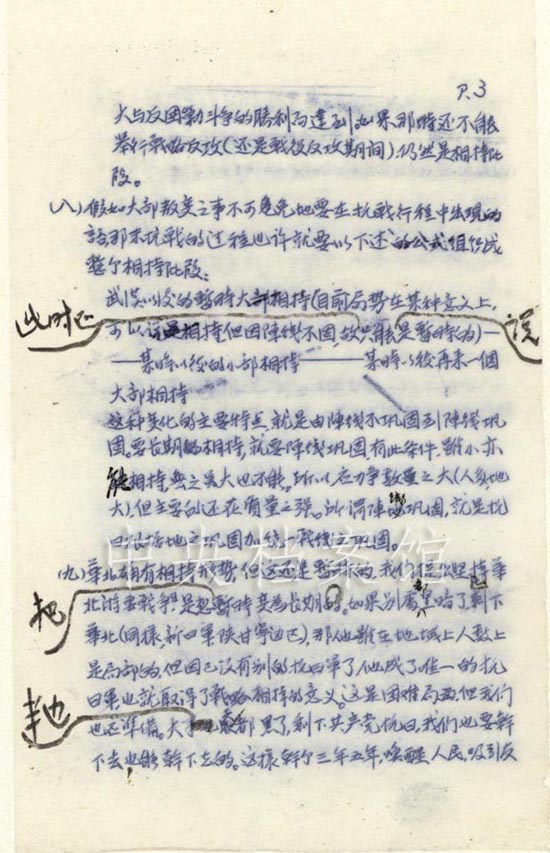 P.3
大与反国勢斗争的勝利而達到。如果那時还不能
举行戰略反攻(还是戰役反攻期間)仍然是相持阶
段。
(八)假如大部叛变之事不可避免地要在抗戰行程中出現的
話那末抗戰的过程也许就要以下述的公式组织成
整个相持阶段:
武漢以後的暫時大部相持(目前局势在某种意义上,
此时已
可以說是相持但因陣线不固故只能是暫時的)—
误
—某時以後的小部相持———某時以後再来一個
大部相持
这种变化的主要特点,就是由陣线不巩固到陣线巩
固。要長期的相持,就要陣线巩固,有此条件,雖小亦
能相持,無之虽大也不能。所以应力争数量之大(人多地
大)但主要的还在質量之强。所謂陣线巩固,就是抗
日根据地之巩固加统一戰线之巩固。
中央档案馆
(九)華北雖有相持形势,但这还是暫時的,我们坚持華
北游击戰争,是把暫時变為長期的。如果別處黑暗了剩下
把
華北(同樣,新四軍陕甘寧边区),那他雖在地域上人数上
是局部的,但因已没有别的抗日軍了,他成了唯一的抗
日軍也就取得了戰略相持的意义。这是困难局面,但我们
也
也应準備。大部黑了,剩下共产党抗日,我们也要幹
下去也能幹下去的。这樣幹个三年五年,唤醒人民,吸引反